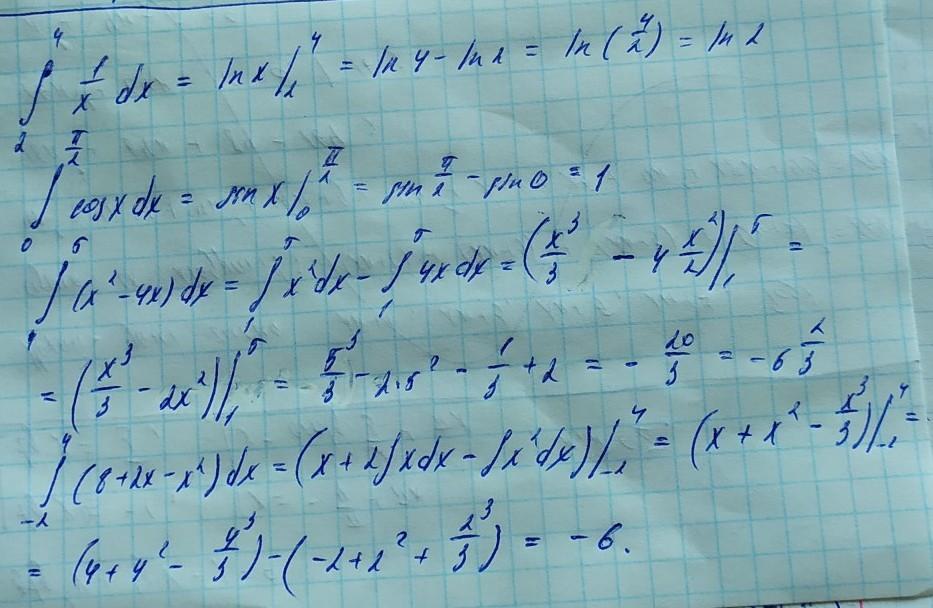 ∫₂⁴ 1/x dx = ln x |₂⁴ = ln 4 - ln 2 = ln (4/2) = ln 2
∫₀^(π/2) cos x dx = sin x |₀^(π/2) = sin π/2 - sin 0 = 1
∫₁⁵ (x² - 4x) dx = ∫₁⁵ x² dx - ∫₁⁵ 4x dx = (x³/3 - 4 x²/2) |₁⁵ =
= (x³/3 - 2x²) |₁⁵ = 5³/3 - 2·5² - 1/3 + 2 = - 20/3 = - 6 2/3
∫₋₂⁴ (8 + 2x - x²) dx = (x + 2∫x dx - ∫x² dx) |₋₂⁴ = (x + x² - x³/3) |₋₂⁴ =
= (4 + 4² - 4³/3) - (-2 + 2² + 2³/3) = - 6.